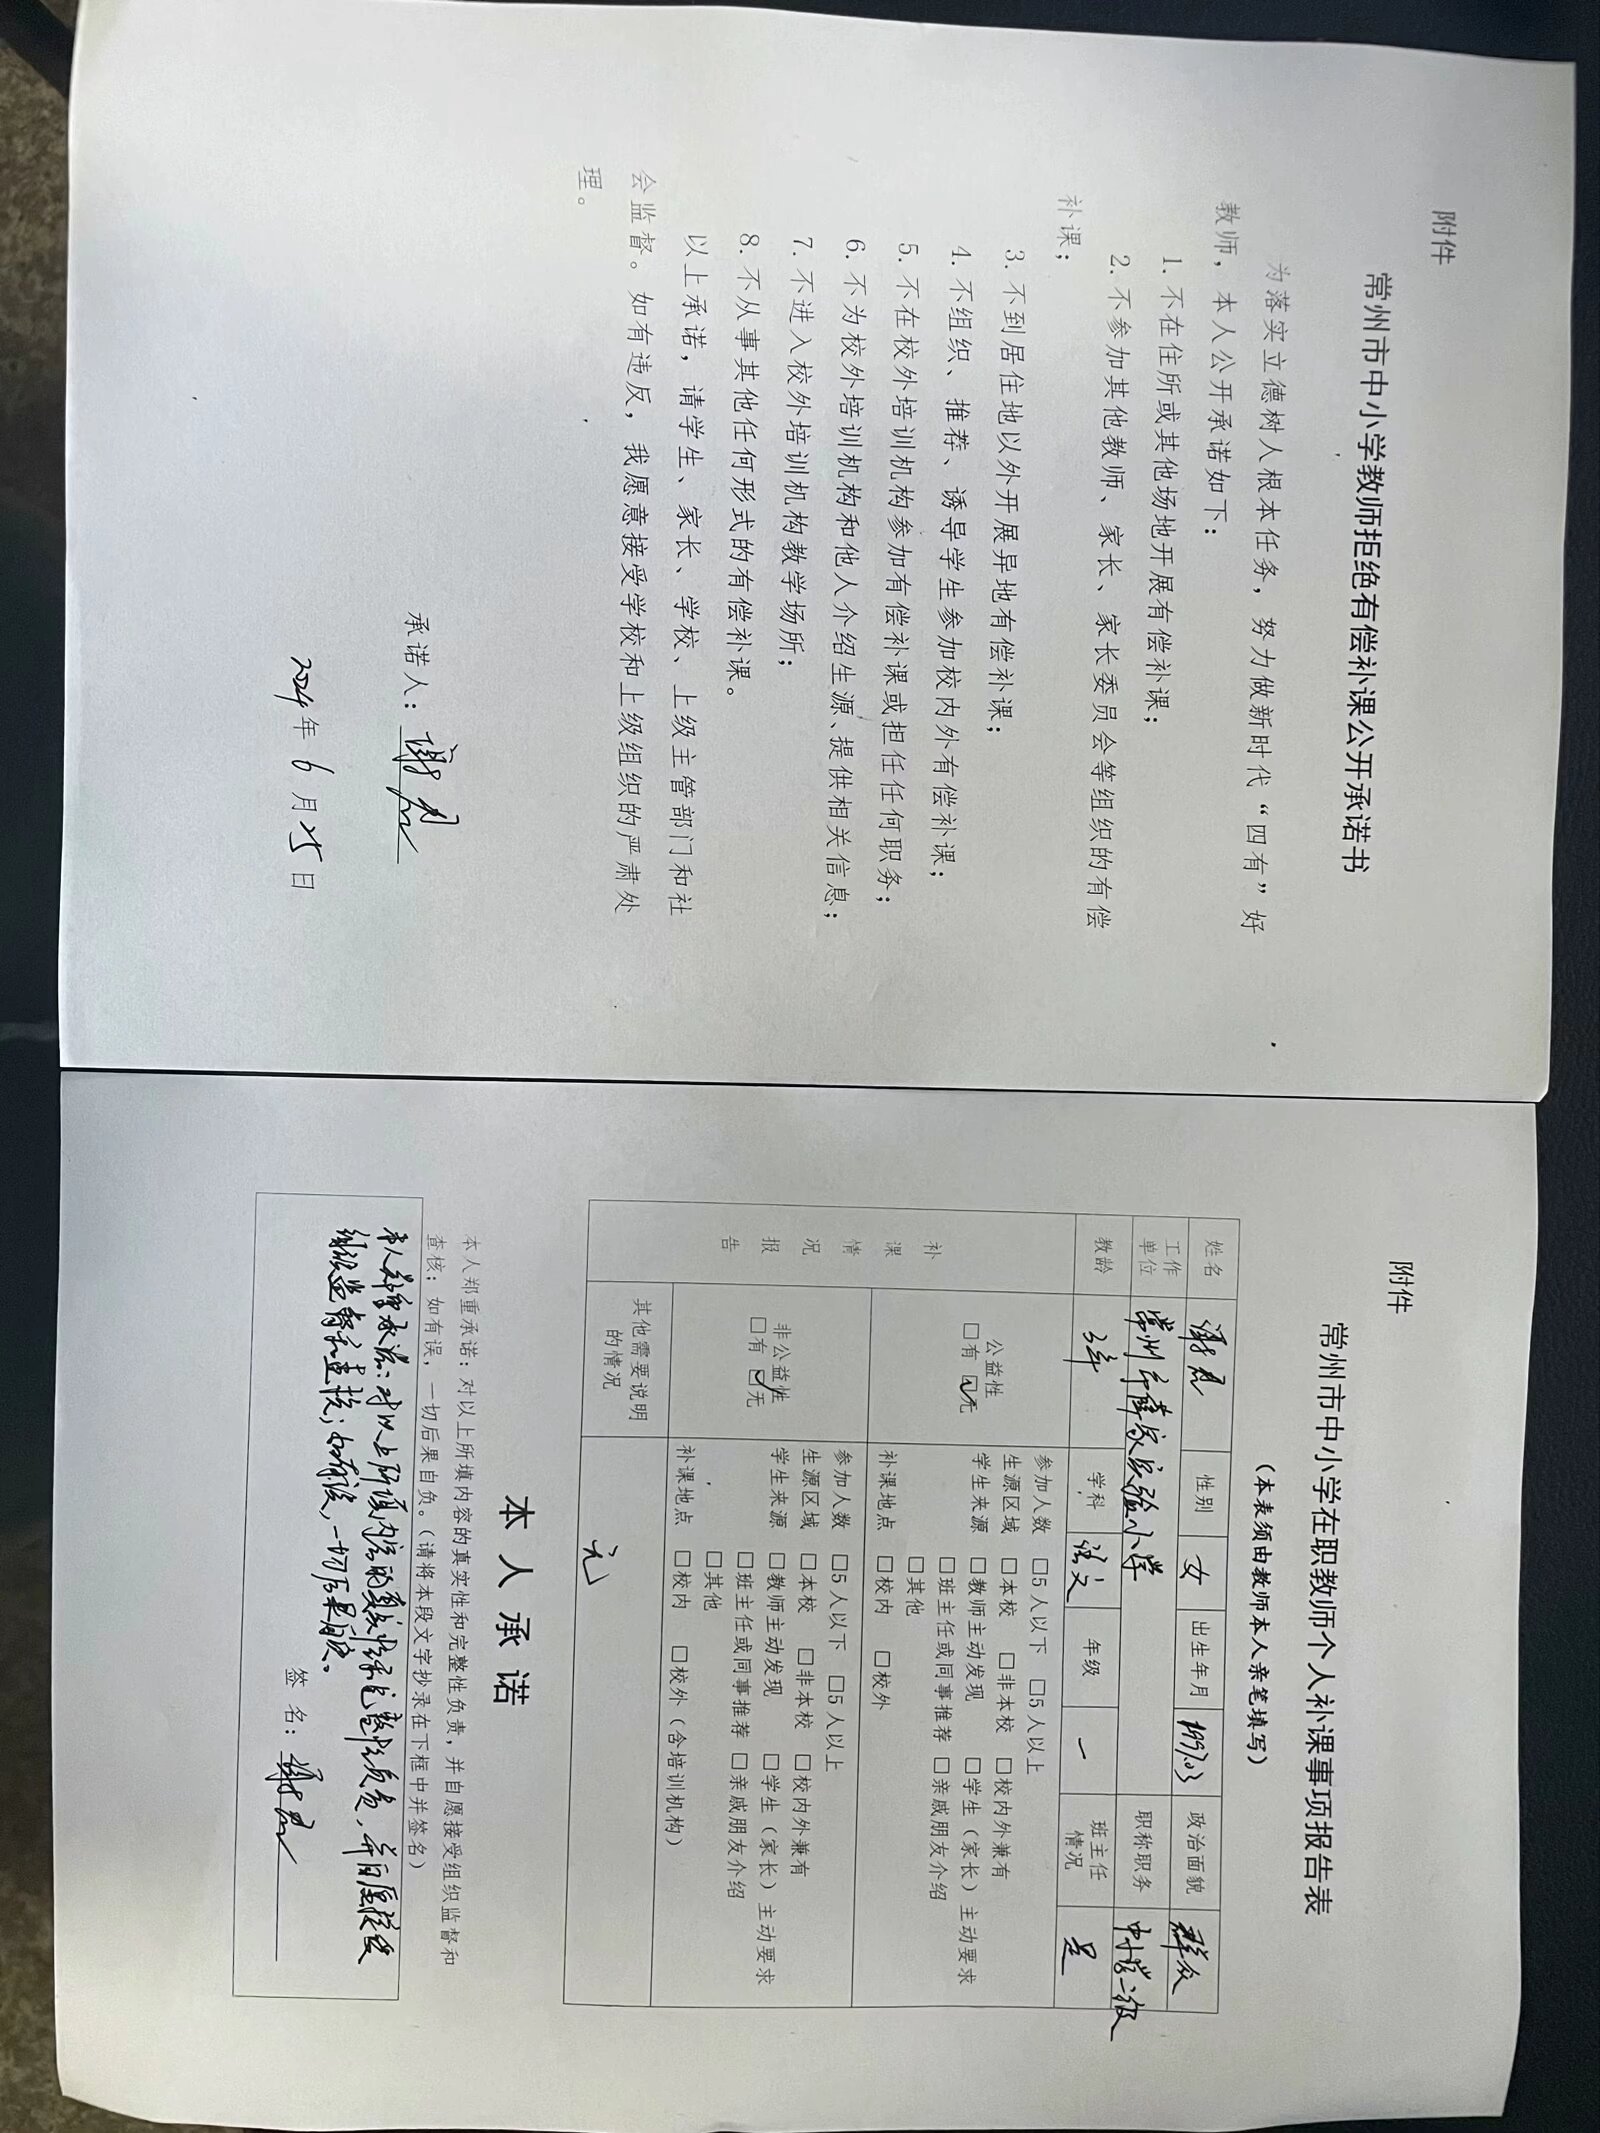 附件
常州市中小学教师拒绝有偿补课公开承诺书
为落实立德树人根本任务，努力做新时代“四有”好
教师，本人公开承诺如下：
1. 不在住所或其他场地开展有偿补课；
2. 不参加其他教师、家长、家长委员会等组织的有偿
补课；
3. 不到居住地以外开展异地有偿补课；
4. 不组织、推荐、诱导学生参加校内外有偿补课；
5. 不在校外培训机构参加有偿补课或担任任何职务；
6. 不为校外培训机构和他人介绍生源、提供相关信息；
7. 不进入校外培训机构教学场所；
8. 不从事其他任何形式的有偿补课。
以上承诺，请学生、家长、学校、上级主管部门和社
会监督。如有违反，我愿意接受学校和上级组织的严肃处
理。
承诺人：谢
2024年 6 月 25 日
附件
常州市中小学在职教师个人补课事项报告表
（本表须由教师本人亲笔填写）
姓名 谢 性别 女 出生年月 1997.03 政治面貌 群众
工作单位 常州市薛家实验小学 职称职务 中小学二级
教龄 3年 学科 语文 年级 一 班主任情况 是
补课情况报告
公益性
□有 ☑无
参加人数 □5人以下 □5人以上
生源区域 □本校 □非本校 □校内外兼有
学生来源 □教师主动发现 □学生（家长）主动要求
□班主任或同事推荐 □亲戚朋友介绍
□其他
补课地点 □校内 □校外
非公益性
□有 ☑无
参加人数 □5人以下 □5人以上
生源区域 □本校 □非本校 □校内外兼有
学生来源 □教师主动发现 □学生（家长）主动要求
□班主任或同事推荐 □亲戚朋友介绍
□其他
补课地点 □校内 □校外（含培训机构）
其他需要说明
的情况
无
本 人 承 诺
本人郑重承诺：对以上所填内容的真实性和完整性负责，并自愿接受组织监督和
查核；如有误，一切后果自负。（请将本段文字抄录在下框中并签名）
本人郑重承诺：对以上所填内容的真实性和完整性负责，并自愿接受
组织监督和查核；如有误，一切后果自负。
签 名：谢